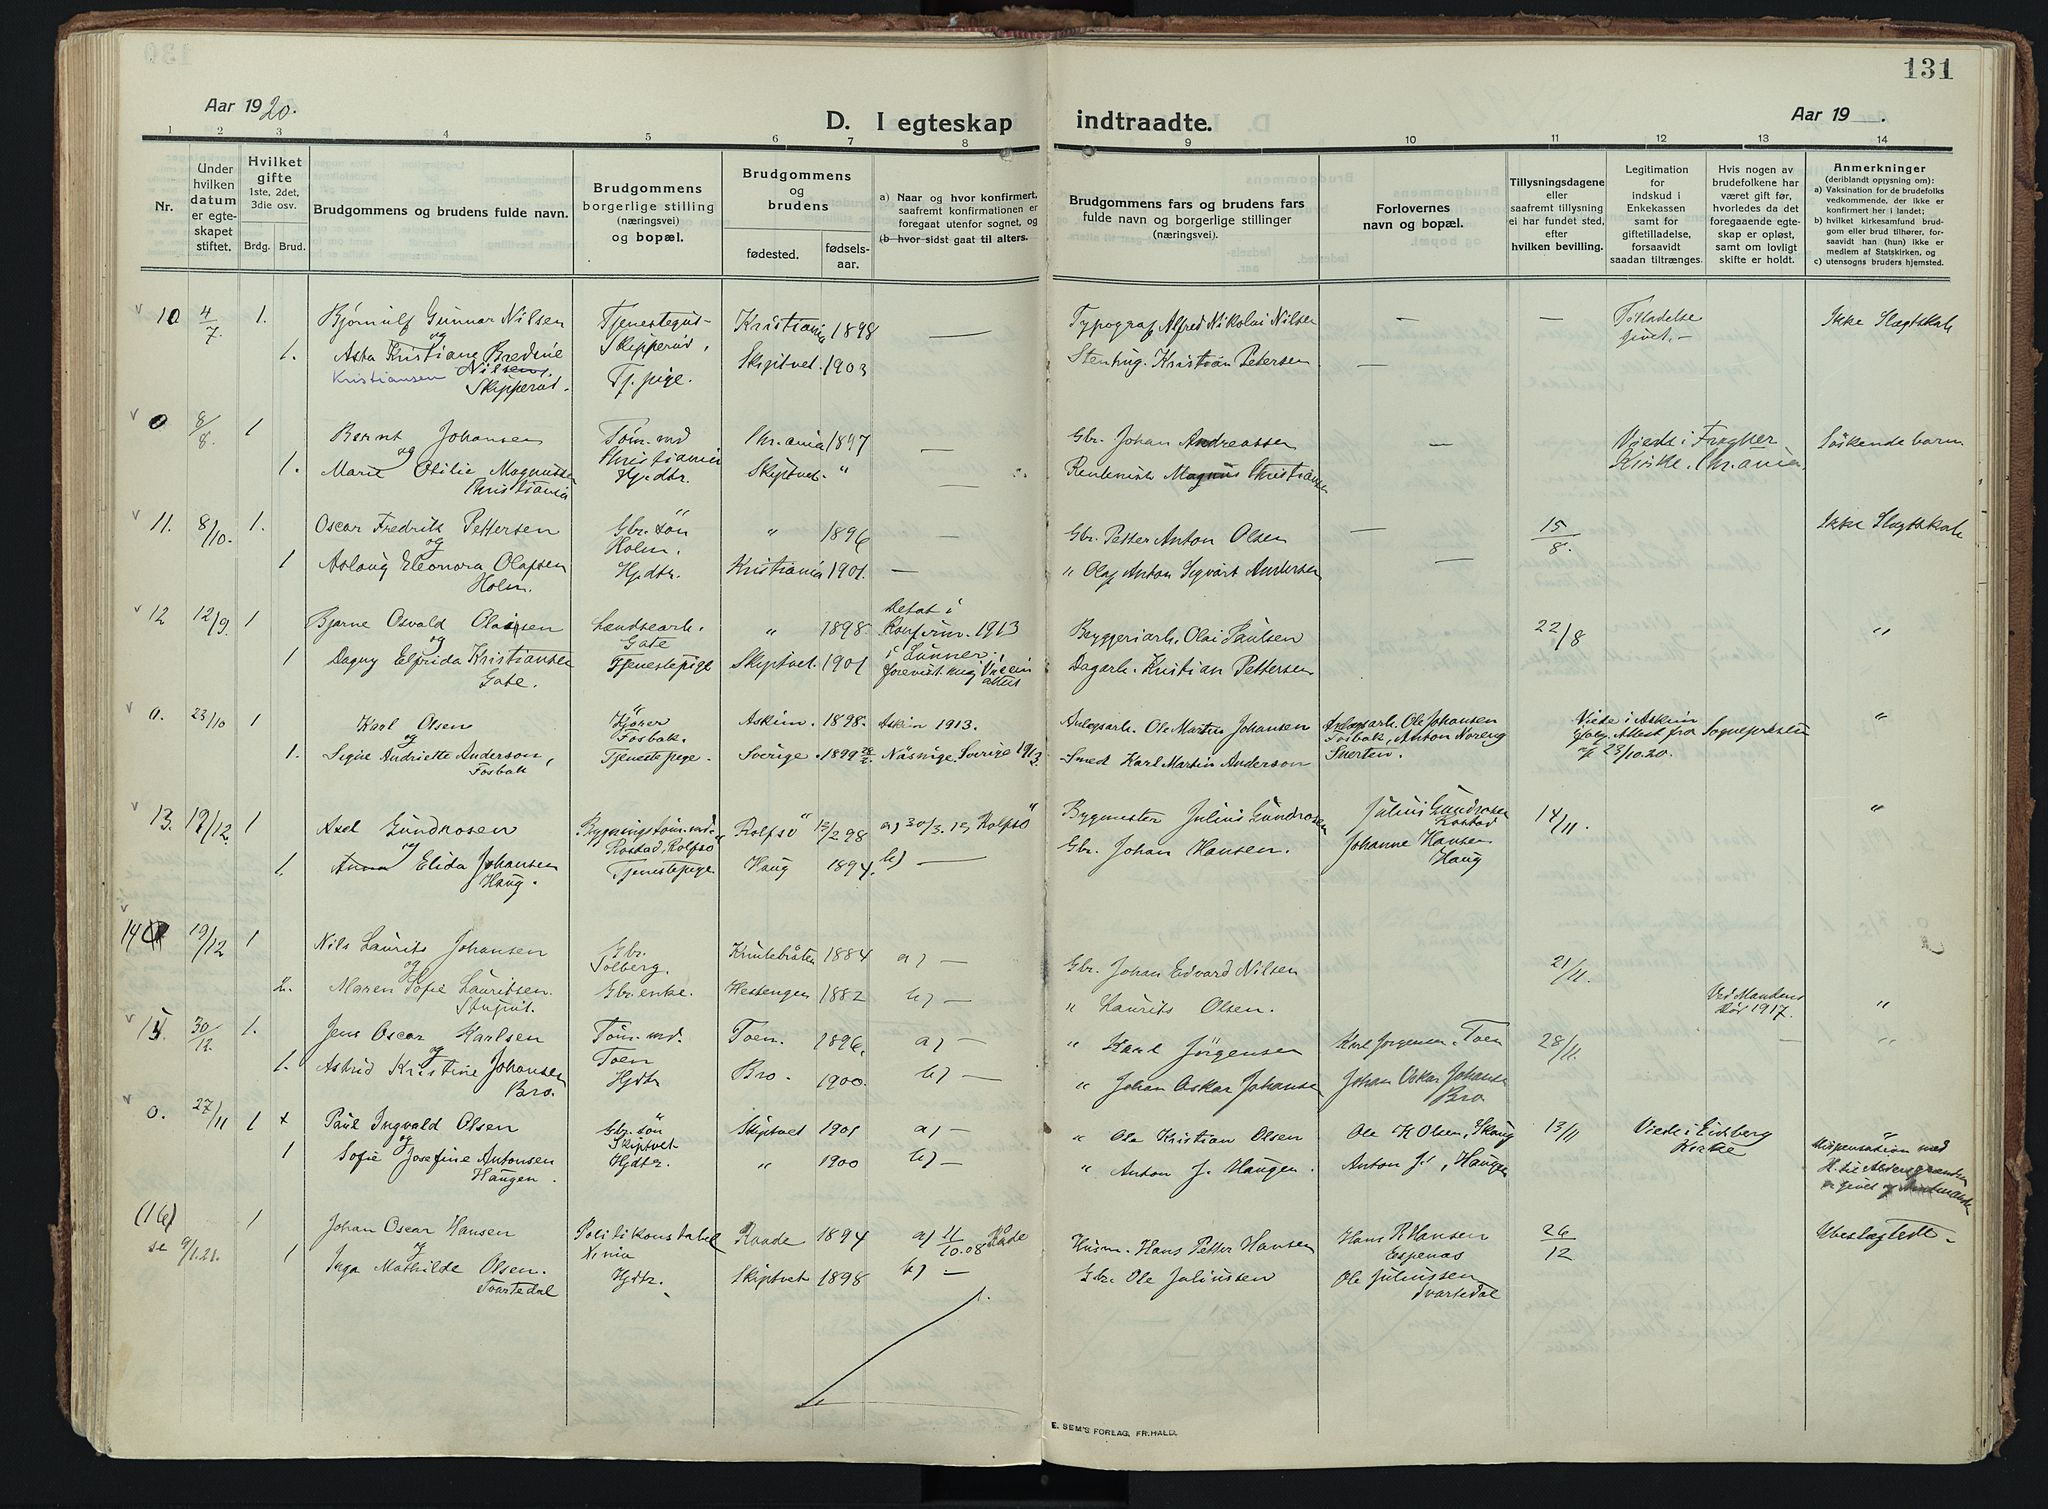 131
Aar 1920.
D. I egteskap indtraadte.
Aar 19 .
1 2 3 4 5 6 7 8 9 10 11 12 13 14
Nr.
Under hvilken datum er egteskapet stiftet.
Hvilket gifte 1ste, 2det, 3die osv.
Brdg. Brud.
Brudgommens og brudens fulde navn.
Brudgommens borgerlige stilling (næringsvei) og bopæl.
Brudgommens og brudens
fødested.
fødselsaar.
a) Naar og hvor konfirmert, saafremt konfirmationen er foregaat utenfor sognet, og
(b hvor sidst gaat til alters.
Brudgommens fars og brudens fars fulde navn og borgerlige stillinger (næringsvei).
Forlovernes navn og bopæl.
Tillysningsdagene eller saafremt tillysning ei har fundet sted, efter hvilken bevilling.
Legitimation for indskud i Enkekassen samt for giftetilladelse, forsaavidt saadan tiltrænges.
Hvis nogen av brudefolkene har været gift før, hvorledes da det foregaaende egteskap er opløst, samt om lovligt skifte er holdt.
Anmerkninger (deriblandt opysning om):
a) Vaksination for de brudefolks vedkommende, der ikke er konfirmert her i landet;
b) hvilket kirkesamfund brudgom eller brud tilhører, forsaavidt han (hun) ikke er medlem af Statskirken, og
c) utensogns bruders hjemsted.
10 4/7. 1. Bjørnulf Gunnar Nilsen Tjenestegut Kristiania 1898 — Typograf Alfred Nikolai Nilsen — — Tilladelse givet.- Ikke Slægtskab
og Skipperud,
1. Asta Kristiane Bredine Tj. pige. Skiptvet. 1903 Stenhug. Kristian Petersen —
Kristiansen Nilsen,
Skipperud.
0 8/8. 1 Bernt Johansen Tøm. md Chr.ania 1897 — Gbr. Johan Andreassen — Viede i Frogner Søskendebarn
og Christiania Kirke. Chr.ania.
1. Marie Otilie Magnussen Hjdtr. Skiptvet. " —
Christiania
11. 8/10. 1. Oscar Fredrik Pettersen Gbr. søn " 1896 — Gbr. Petter Anton Olsen — 15/8. Ikke Slægtskab
og Holm.
1 Aslaug Eleonora Olafsen Hjdtr. Kristiania 1901. — " Olaf Anton Sigvart Andersen —
Holm.
12 12/9. 1 Bjarne Osvald Olaisen Landsearb. " 1898 Konfirm. 1913 Bryggeriarb. Olai Paulsen 22/8 "
og Gate i Lunner.
1 Dagny Elfrida Kristiansen Tjenestepige Skiptvet. 1901 Dagarb. Kristian Pettersen
Gate.
0. 23/10 1 Karl Olsen Kjører Askim. 1898. Askim 1913. Anlægsarb. Ole Martin Johansen Anlægsarb. Ole Johansen Viede i Askim "
og Fosbak. Fosbak, Anton Noreng ifølg. Attest fra Sognepresten
1. Signe Andriette Anderson, Tjenestepige. Sverige. 1899 Sverige 1913. Smed Karl Martin Anderson af 23/10.20.
Fosbak
13. 1 Axel Gundrosen Rolfsø 12/2 98 a) 30/3. Rolfsø Bygmester Julius Gundrosen Julius Gundrosen 14/11. "
og Rostad, Rolfsø Rostad
1. Anna Elida Johansen Tjenestepige Haug 1894. b) — Gbr. Johan Hansen. Johanne Hansen
Haug. Haug
14 19/12 1 Nils Laurits Johansen Gbr. 1884 a) — Gbr. Johan Edvard Nilsen 21/11.
og Solberg.
2. Maren Sofie Lauritsen. Gbr. enke. 1882 b) — " Laurits Olsen. Ved Mandens "
død 1917.
15 30/12 1. Jens Oscar Karlsen Tøm. md. Toen. 1896. a) — " Karl Jørgensen Karl Jørgensen. Toen 28/11. — "
og Toen
1. Astrid Kristine Johansen Hjdtr Bro. 1900. b) — " Johan Oskar Johansen Johan Oskar Johansen
Bro. Bro
0. 27/11 1 x Paul Ingvald Olsen Gbr. søn Skiptvet 1901 a) — " Ole Kristian Olsen Ole K Olsen, Skaug 13/11 Viede i Eidsberg "
og Skiptvet Kirke
1 Sofie Josefine Antonsen Hjdtr. " 1900 b) — " Anton J. Haugen. Anton J. Haugen Dispensation med
Haugen.
(16) 1 Johan Oscar Hansen Politikonstabel Raade 1894 a) 11/10.08 Råde Husm. Hans Petter Hansen Hans P Hansen 26/12 Ubeslægtede.
se 9/1.21. og Xania Espenæs
1 Inga Mathilde Olsen. Hjdtr. Skiptvet 1898 b) — Gbr. Ole Juliussen Ole Juliussen
Svartedal Svartedal
E. SEM'S FORLAG, FR.HALD.